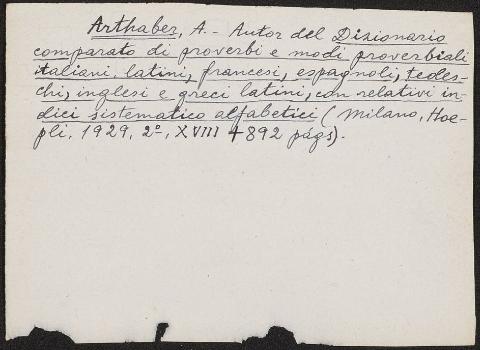 Arthaber, A. - Autor del Dizionario
comparato di proverbi e modi proverbiali
italiani, latini, francesi, espagnoli, tedes-
chi, inglesi e greci latini, con relativi in-
dici sistematico alfabetici (Milano, Hoe-
pli, 1929, 2º, XVIII + 892 págs).